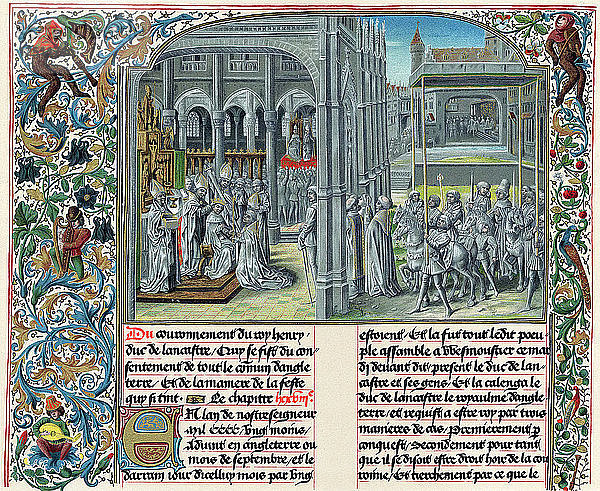 Du couronnement du roy henry
duc de lancastre / Quy se fist du con
sentement de tout le commun dangle
terre / Et de la maniere de la feste
quy si tint. Le chapitre
En lan de nostre seigneur
mil .CCCC. ung moins /
Advint en angleterre ou
mois de septembre / et le
darrain jour dicelluy mois par ung
estoient / Et la fut tout ledit poeu
ple assamble a westmoustier ce mar
dj devant dit present le duc de lan
castre et ses gens / Et calenga le
duc de lancastre le royaulme dangle
terre / et requist a estre roy par trois
manieres de cas / Premierement par
conquest / Secondement pour tant
que il se disoit estre droit hoir de la cou
ronne / Et tierchement par ce que le